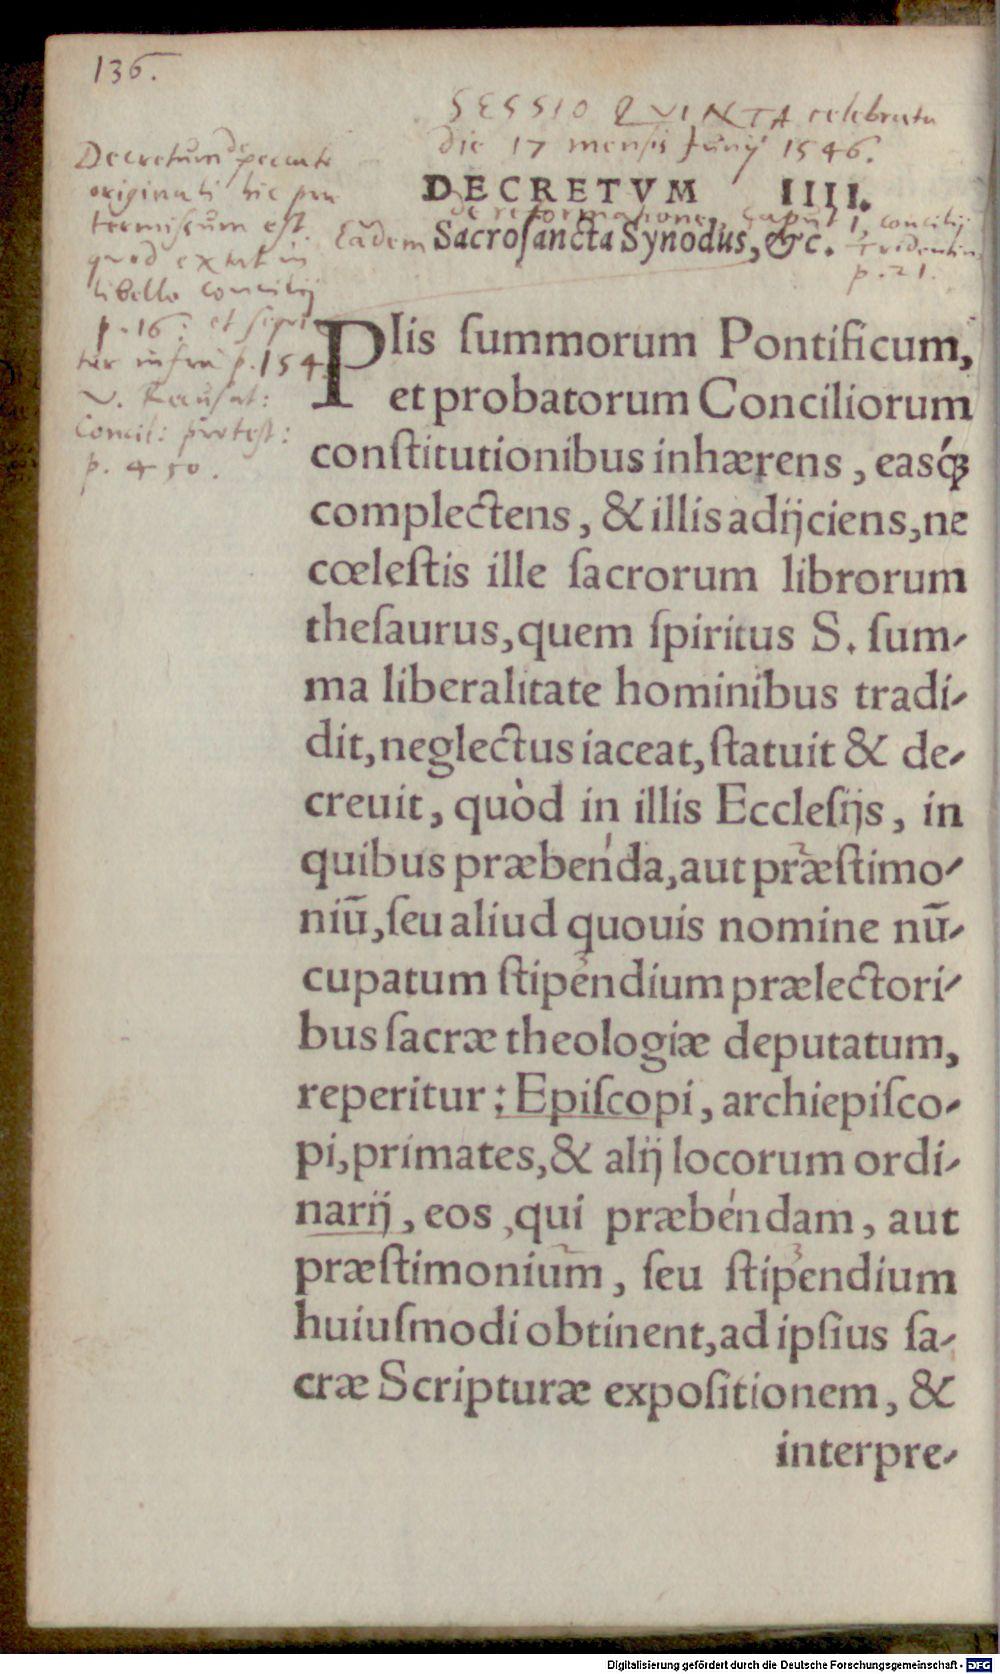 136.
SESSIO QVINTA celebrata
die 17 mensis Junij 1546.
Decretum de peccato
originali hic præ
termissum est.
quod extat in
libello concilij
p. 16: et
infra p. 154.
V.
Concil: protest:
p. 450.
DECRETVM IIII.
de reformatione, caput 1, concilij
Tridentin.
p. 21.
Eadem Sacroſancta Synodus, &c.
PIis ſummorum Pontificum,
et probatorum Conciliorum
conſtitutionibus inhærens, easq́ꝫ
complectens, & illis adijciens, ne
cœleſtis ille ſacrorum librorum
theſaurus, quem ſpiritus S. ſum-
ma liberalitate hominibus tradi-
dit, neglectus iaceat, ſtatuit & de-
creuit, quòd in illis Eccleſijs, in
quibus præbenda, aut præſtimo-
niū, ſeu aliud quouis nomine nū-
cupatum ſtipendium prælectori-
bus ſacræ theologiæ deputatum,
reperitur: Epiſcopi, archiepiſco-
pi, primates, & alij locorum ordi-
narij, eos, qui præbendam, aut
præſtimonium, ſeu ſtipendium
huiuſmodi obtinent, ad ipſius ſa-
cræ Scripturæ expoſitionem, &
interpre-
Digitalisierung gefördert durch die Deutsche Forschungsgemeinschaft - DFG